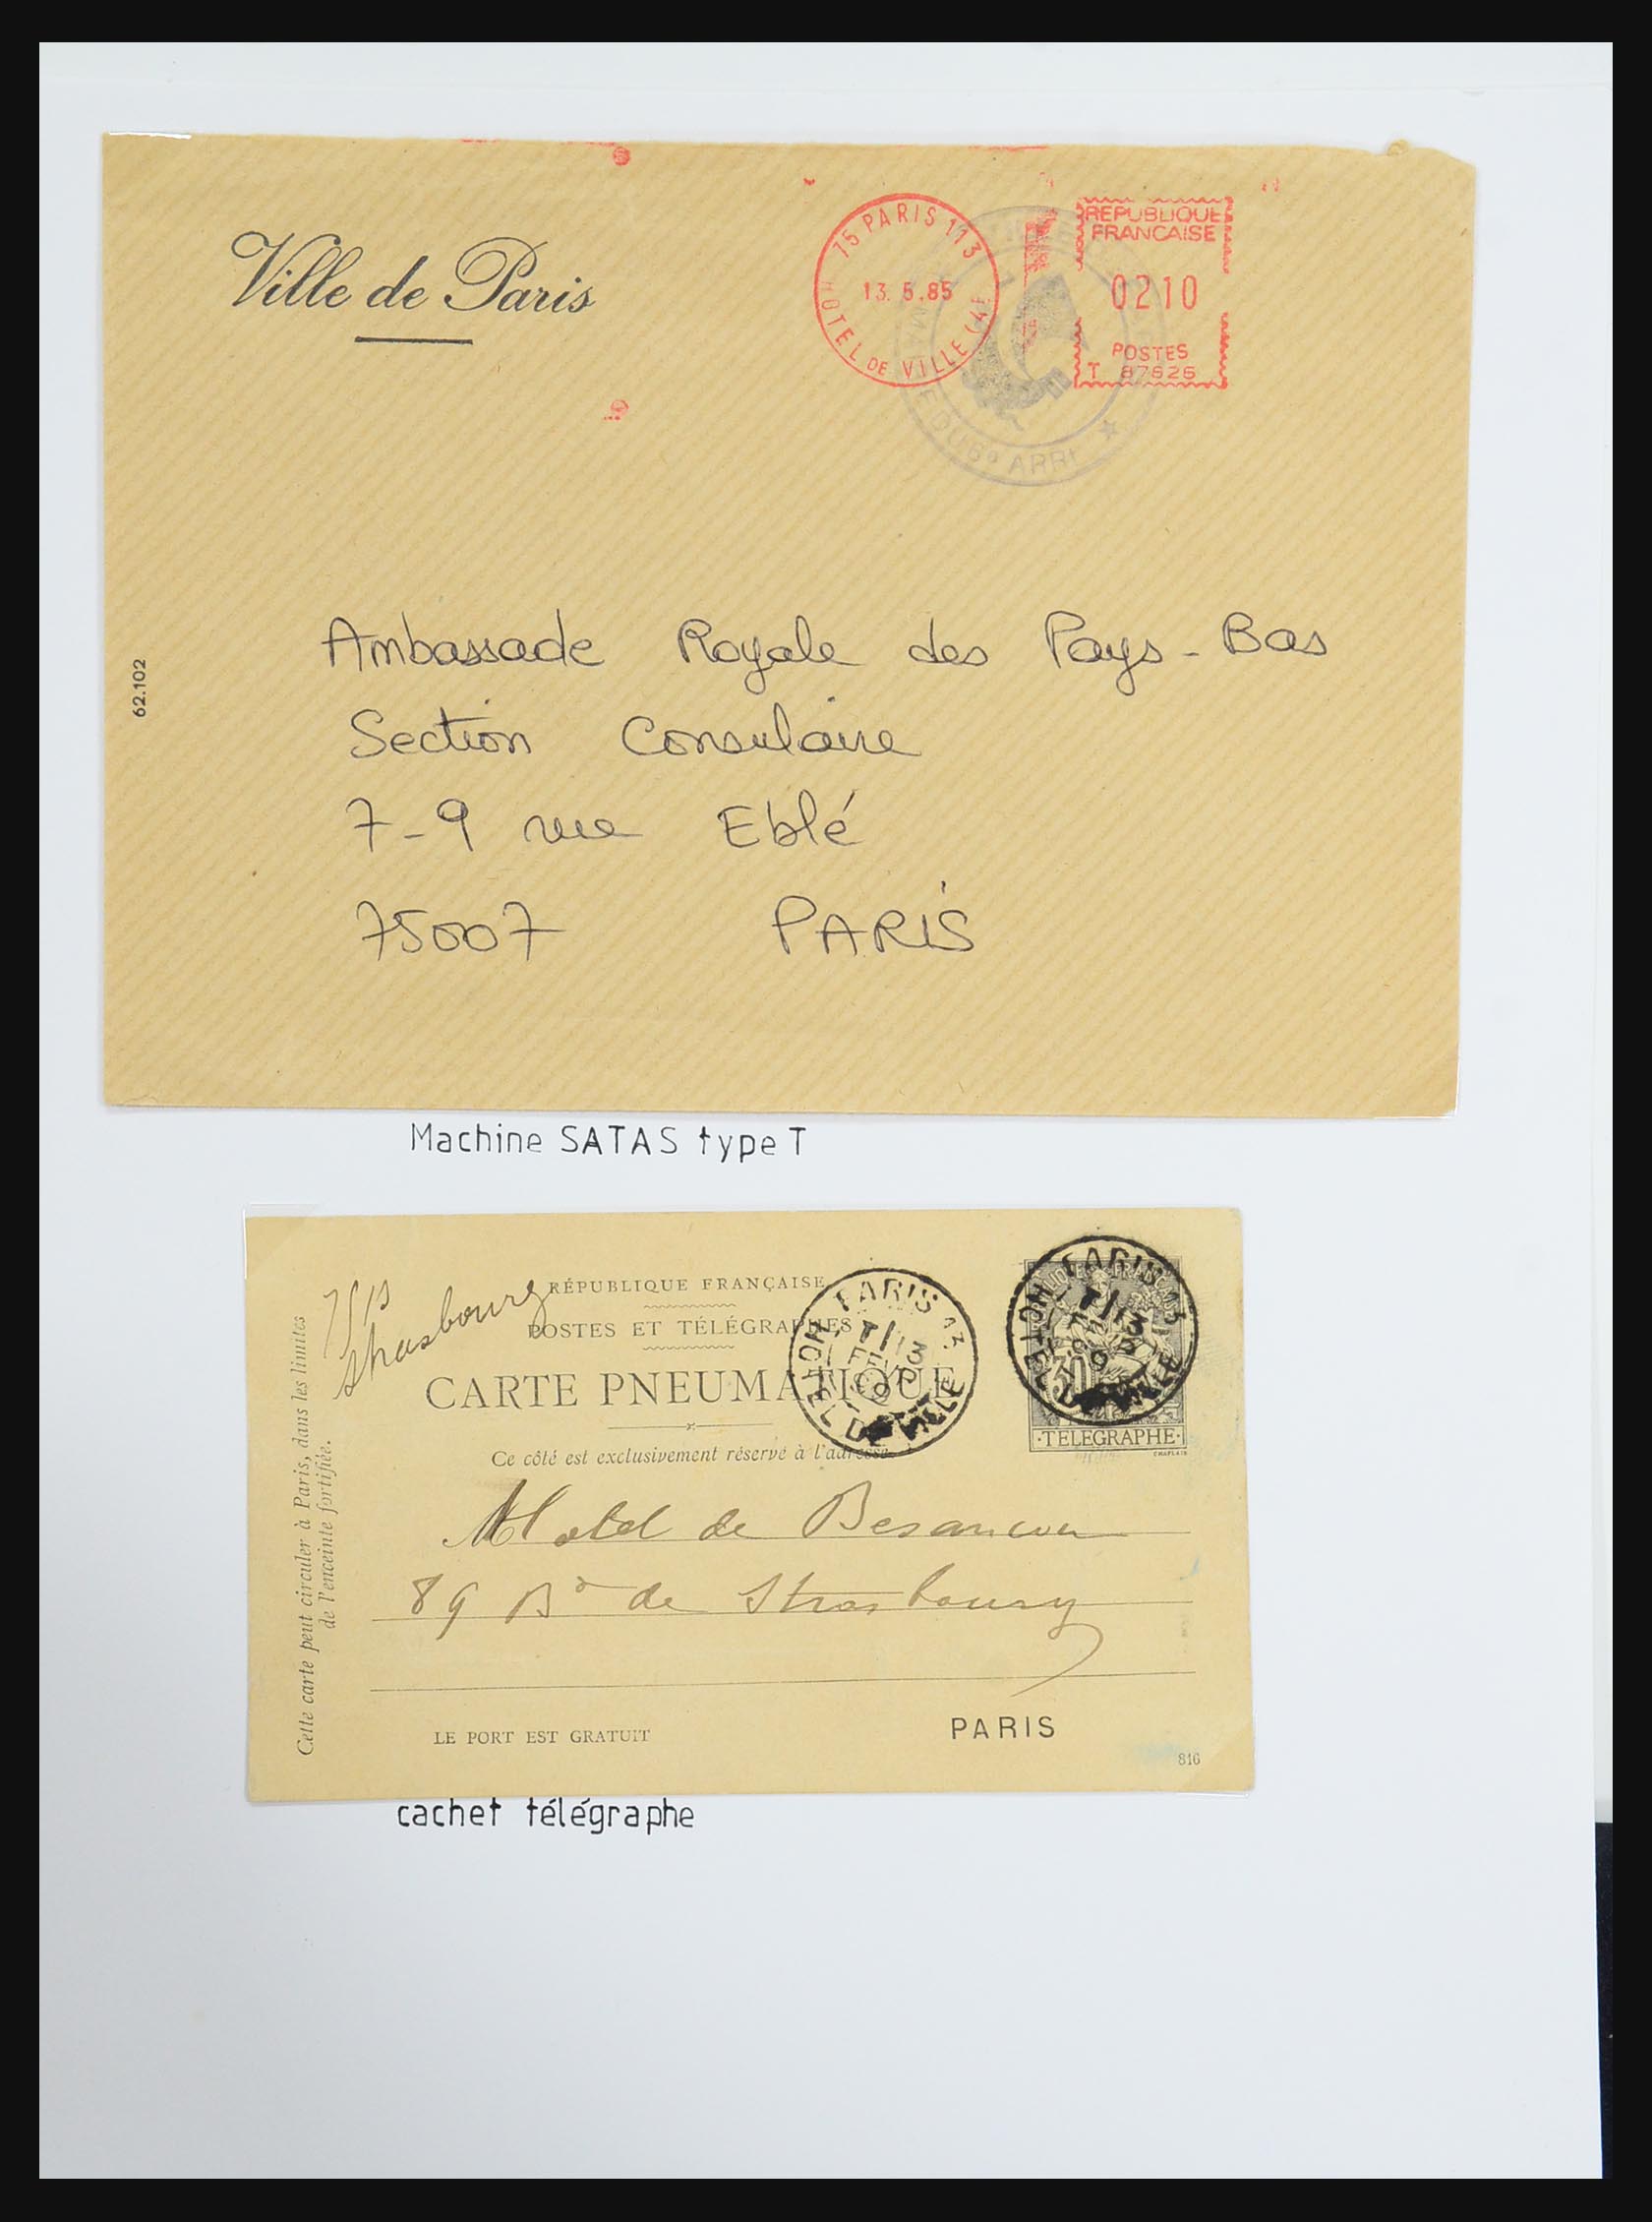 Ville de Paris
75 PARIS 113
13. 5.85
HOTEL DE VILLE (4E
REPUBLIQUE
FRANCAISE
0210
POSTES
T 87525
E DU 6e ARR
62.102
Ambassade Royale des Pays-Bas
Section Consulaire
7-9 rue Eblé
75007 PARIS
Machine SATAS type T
RÉPUBLIQUE FRANÇAISE
POSTES ET TÉLÉGRAPHES
CARTE PNEUMATIQUE
Ce côté est exclusivement réservé à l'adresse.
Strasbourg
PARIS 13
HOTEL DE VILLE
PARIS 13
HOTEL DE VILLE
30
·TELEGRAPHE·
CHAPLAIN
Hotel de Besancon
89 Bd de Strasbourg
PARIS
LE PORT EST GRATUIT
816
Cette carte peut circuler à Paris, dans les limites
de l'enceinte fortifiée.
cachet télégraphe